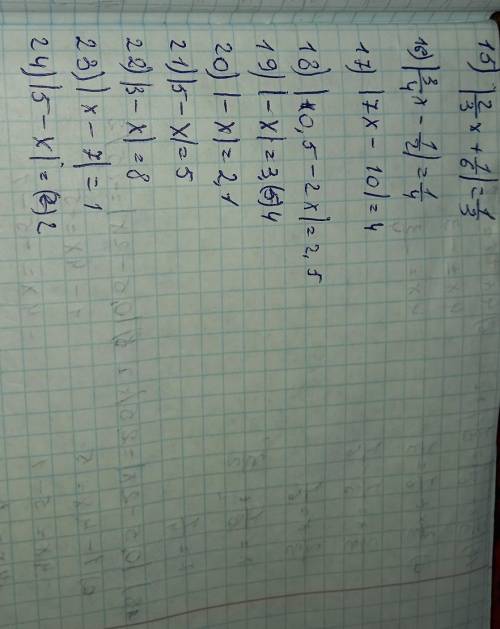 15) |2/3 x + 1/6| = 1/3
16) |3/4 x - 1/2| = 1/4
17) |7x - 10| = 4
18) |0,5 - 2x| = 2,5
19) |-x| = 3,(5)4
20) |-x| = 2,1
21) |5 - x| = 5
22) |3 - x| = 8
23) |x - 7| = 1
24) |5 - x| = 2